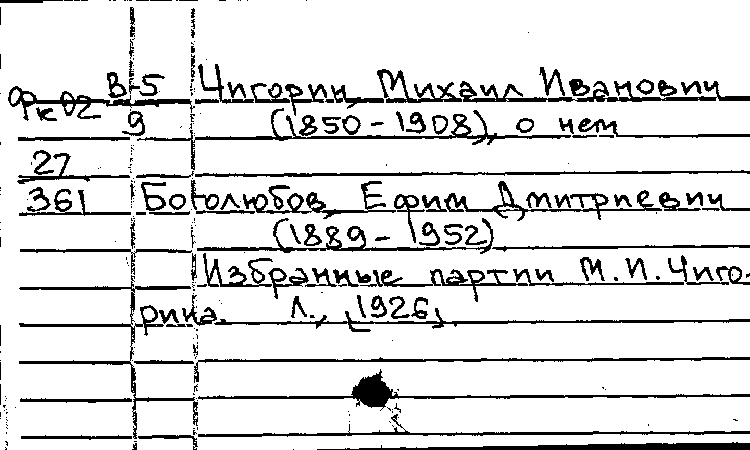 Фк 02 В-5 Чигорин, Михаил Иванович
9 (1850-1908), о нем
27
361 Боголюбов, Ефим Дмитриевич
(1889-1952).
Избранные партии М.И.Чиго-
рина. Л., [1926].